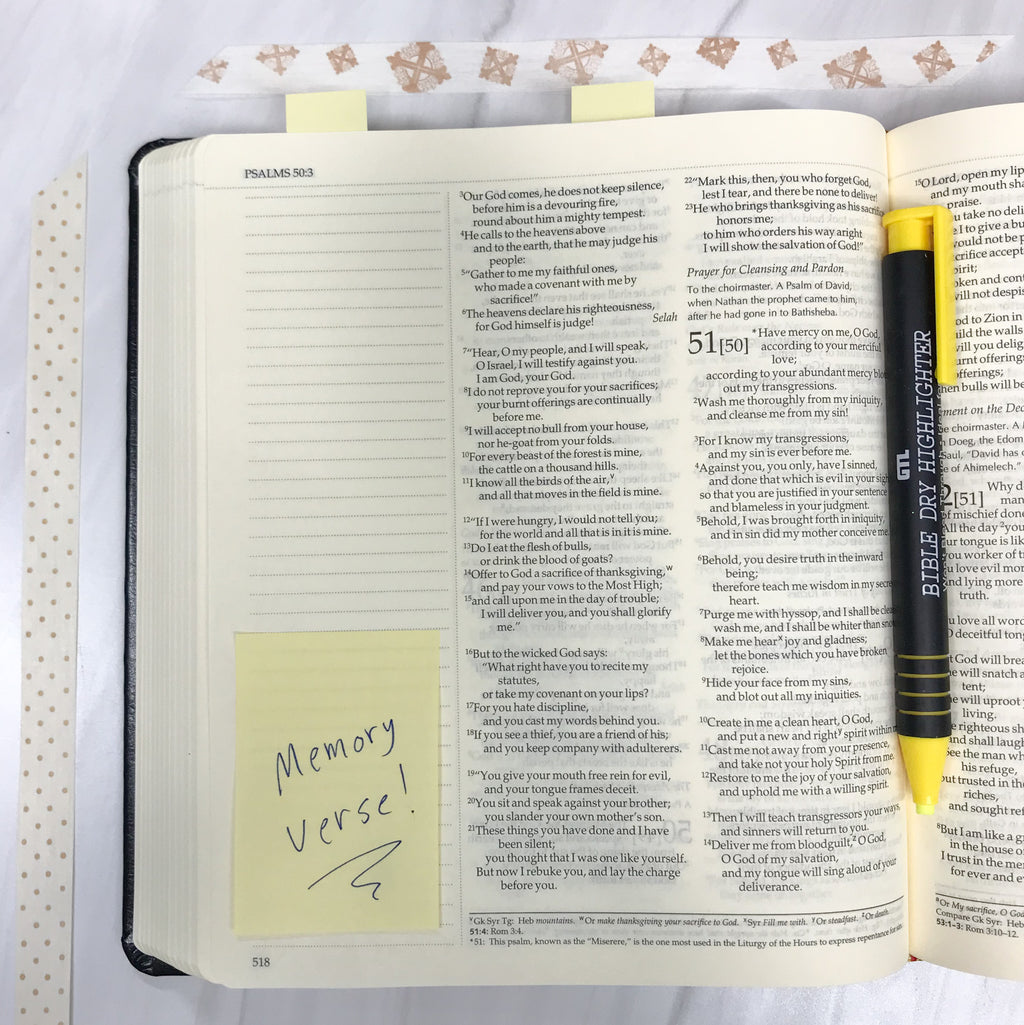 PSALMS 50:3
³Our God comes, he does not keep silence,
before him is a devouring fire,
round about him a mighty tempest.
⁴He calls to the heavens above
and to the earth, that he may judge his
people:
⁵“Gather to me my faithful ones,
who made a covenant with me by
sacrifice!”
⁶The heavens declare his righteousness,
for God himself is judge! Selah
⁷“Hear, O my people, and I will speak,
O Israel, I will testify against you.
I am God, your God.
⁸I do not reprove you for your sacrifices;
your burnt offerings are continually
before me.
⁹I will accept no bull from your house,
nor he-goat from your folds.
¹⁰For every beast of the forest is mine,
the cattle on a thousand hills.
¹¹I know all the birds of the air,ᵛ
and all that moves in the field is mine.
¹²“If I were hungry, I would not tell you;
for the world and all that is in it is mine.
¹³Do I eat the flesh of bulls,
or drink the blood of goats?
¹⁴Offer to God a sacrifice of thanksgiving,ʷ
and pay your vows to the Most High;
¹⁵and call upon me in the day of trouble;
I will deliver you, and you shall glorify
me.”
¹⁶But to the wicked God says:
“What right have you to recite my
statutes,
or take my covenant on your lips?
¹⁷For you hate discipline,
and you cast my words behind you.
¹⁸If you see a thief, you are a friend of his;
and you keep company with adulterers.
¹⁹“You give your mouth free rein for evil,
and your tongue frames deceit.
²⁰You sit and speak against your brother;
you slander your own mother’s son.
²¹These things you have done and I have
been silent;
you thought that I was one like yourself.
But now I rebuke you, and lay the charge
before you.
²²“Mark this, then, you who forget God,
lest I tear, and there be none to deliver!
²³He who brings thanksgiving as his sacrifice
honors me;
to him who orders his way aright
I will show the salvation of God!”
Prayer for Cleansing and Pardon
To the choirmaster. A Psalm of David,
when Nathan the prophet came to him,
after he had gone in to Bathsheba.
51[50] *Have mercy on me, O God,
according to your merciful
love;
according to your abundant mercy blot
out my transgressions.
²Wash me thoroughly from my iniquity,
and cleanse me from my sin!
³For I know my transgressions,
and my sin is ever before me.
⁴Against you, you only, have I sinned,
and done that which is evil in your sight
so that you are justified in your sentence
and blameless in your judgment.
⁵Behold, I was brought forth in iniquity,
and in sin did my mother conceive me.
⁶Behold, you desire truth in the inward
being;
therefore teach me wisdom in my secret
heart.
⁷Purge me with hyssop, and I shall be clean
wash me, and I shall be whiter than snow
⁸Make me hearˣ joy and gladness;
let the bones which you have broken
rejoice.
⁹Hide your face from my sins,
and blot out all my iniquities.
¹⁰Create in me a clean heart, O God,
and put a new and rightʸ spirit within
¹¹Cast me not away from your presence,
and take not your holy Spirit from me.
¹²Restore to me the joy of your salvation,
and uphold me with a willing spirit.
¹³Then I will teach transgressors your ways,
and sinners will return to you.
¹⁴Deliver me from bloodguilt,ᶻ O God,
O God of my salvation,
and my tongue will sing aloud of your
deliverance.
ᵛGk Syr Tg: Heb mountains. ʷOr make thanksgiving your sacrifice to God. ˣSyr Fill me with. ʸOr steadfast. ᶻOr death.
51:4: Rom 3:4.
*51: This psalm, known as the “Miserere,” is the one most used in the Liturgy of the Hours to express repentance for
518
Memory
verse!
GTL
BIBLE DRY HIGHLIGHTER
¹⁵O Lord, open my
and my mouth
praise.
take no
to give a
not be
accept
and
not
to Zion in
the walls
you
offerings
offerings;
bulls will be
on the
choirmaster. A
Doeg, the
Saul, “David has
of Ahimelech.”
[51] Why
of mischief
All the day ²you
tongue is
worker of
love evil
and lying more
truth.
love all
deceitful
God will
will snatch
tent;
will uproot
living.
righteous
and shall
the man
his refuge,
trusted in
riches,
and sought
⁸But I am like a
in the house
I trust in the
for ever and
Or My sacrifice, O
Compare Gk Syr: Heb
53:1–3: Rom 3:10–12.